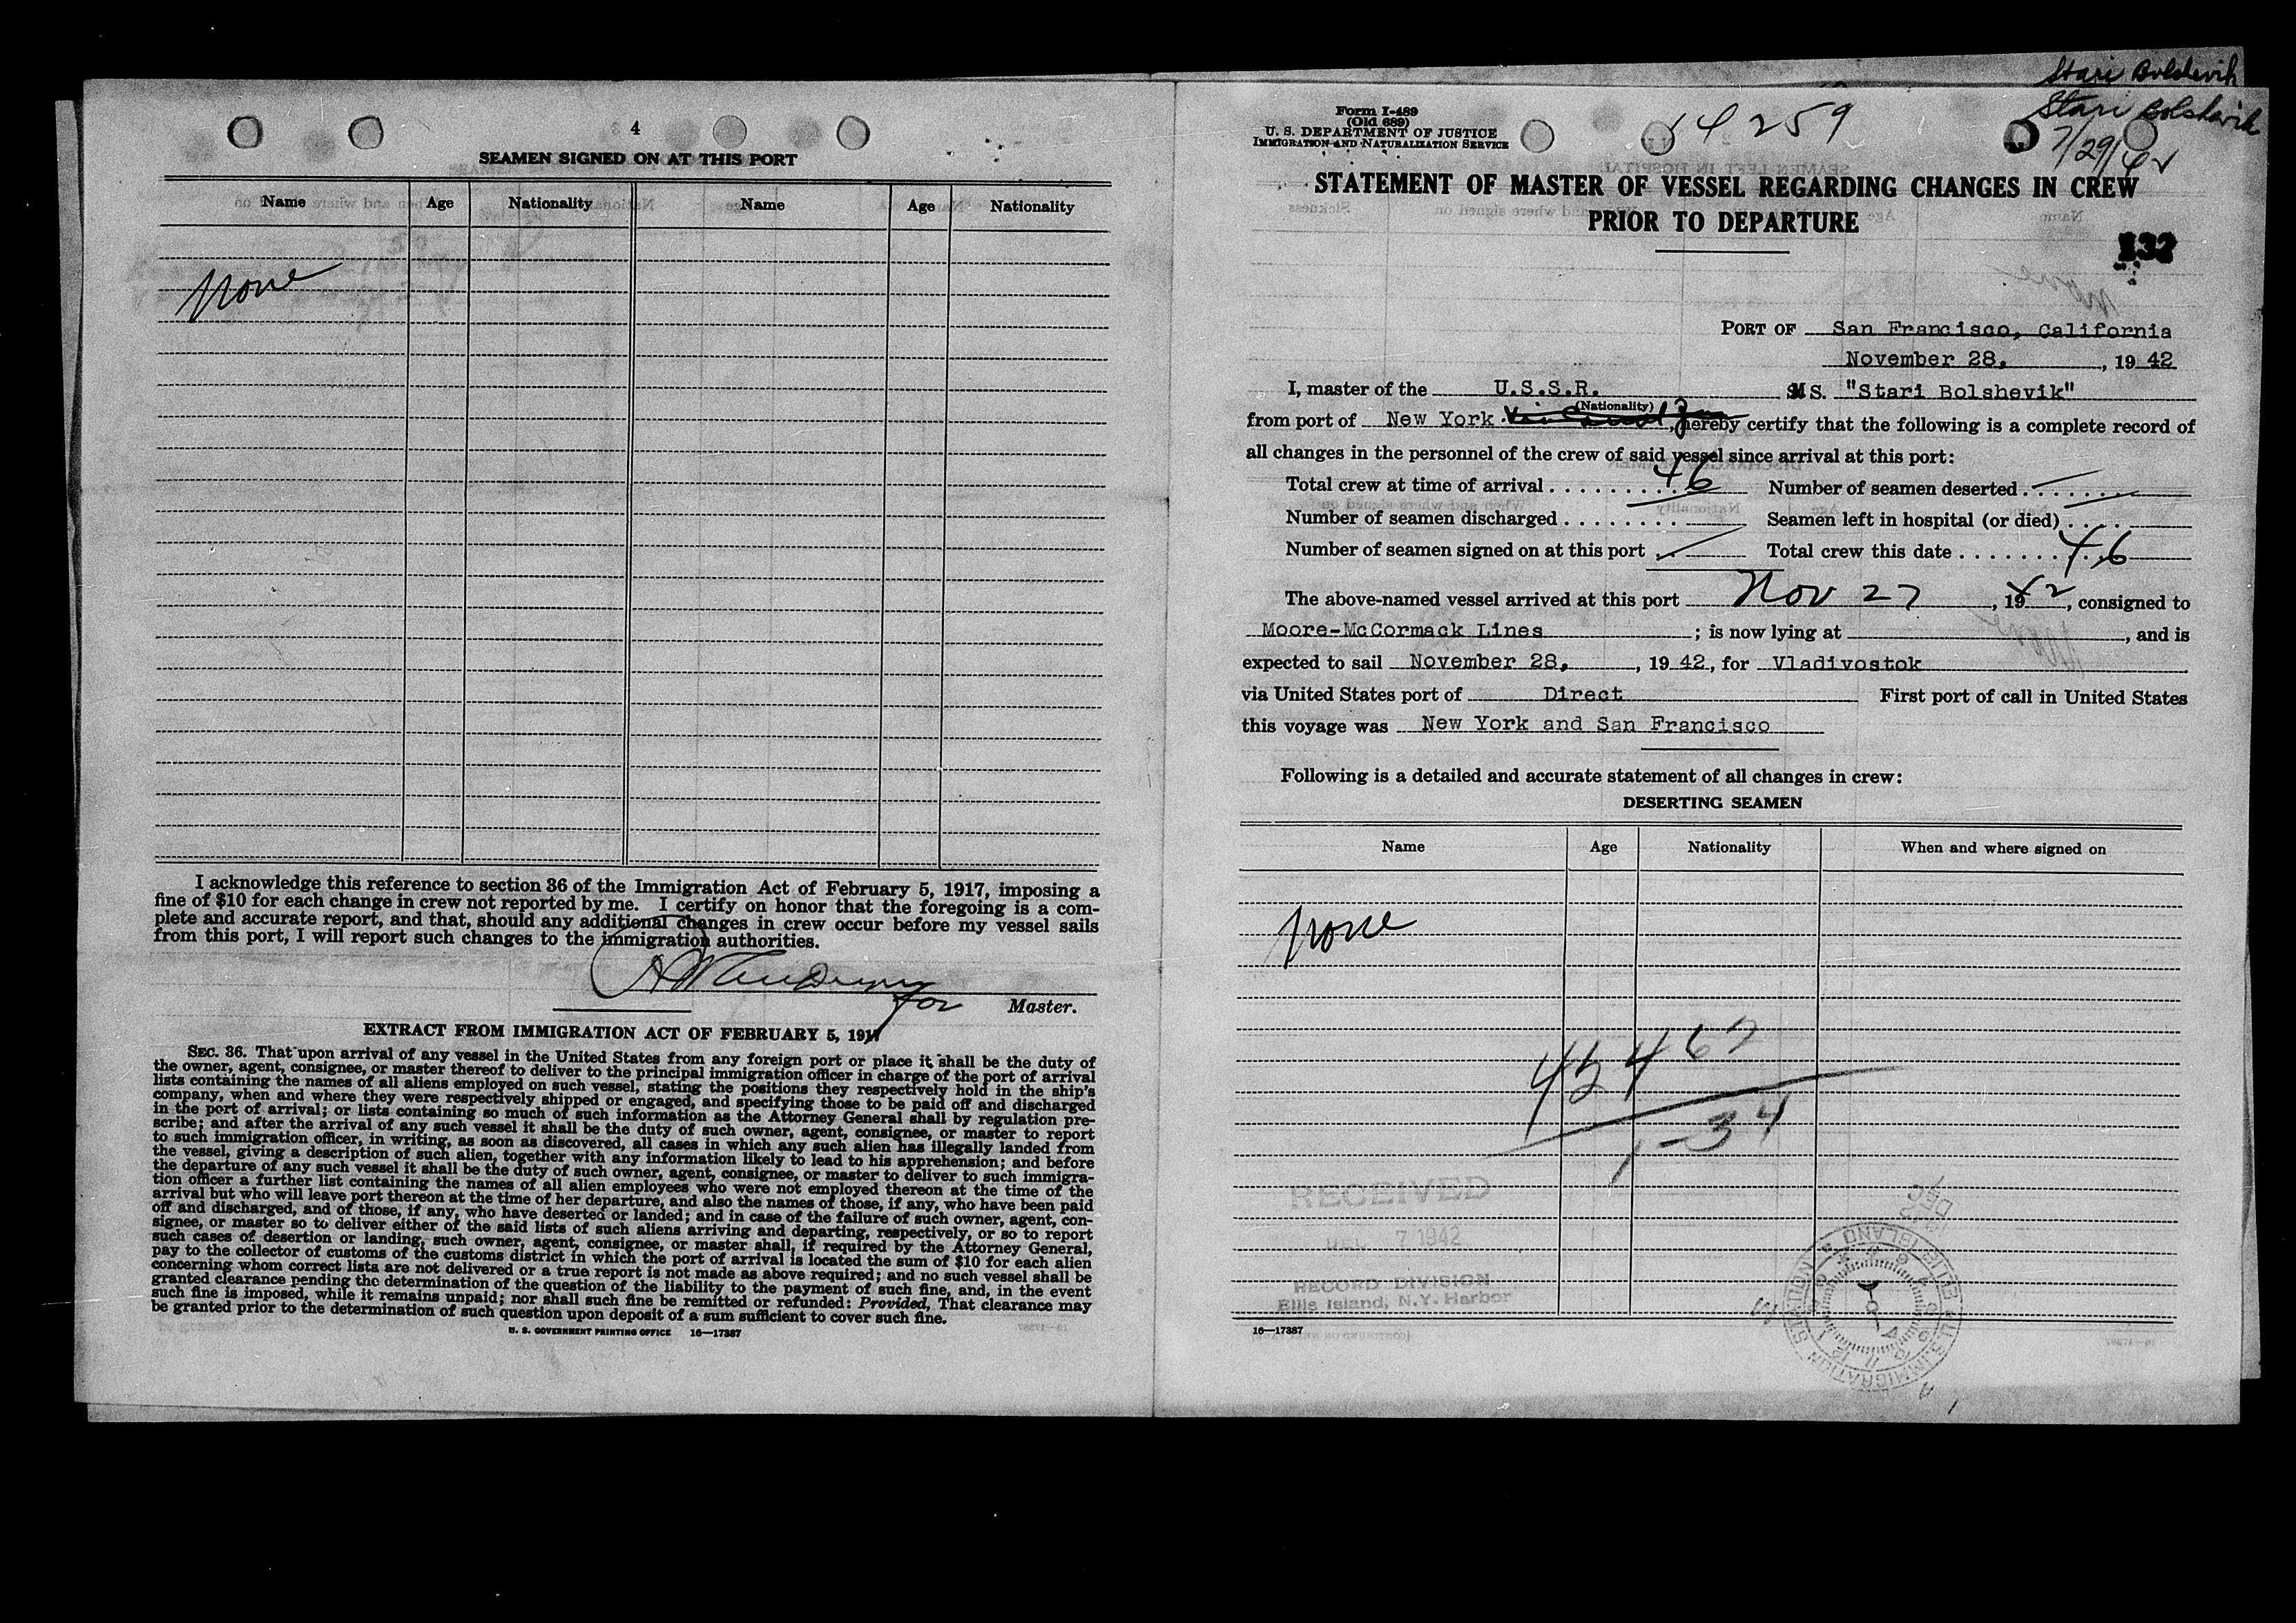 4
SEAMEN SIGNED ON AT THIS PORT
Name Age Nationality Name Age Nationality
None
I acknowledge this reference to section 36 of the Immigration Act of February 5, 1917, imposing a
fine of $10 for each change in crew not reported by me. I certify on honor that the foregoing is a com-
plete and accurate report, and that, should any additional changes in crew occur before my vessel sails
from this port, I will report such changes to the immigration authorities.
for Master.
EXTRACT FROM IMMIGRATION ACT OF FEBRUARY 5, 1917
SEC. 36. That upon arrival of any vessel in the United States from any foreign port or place it shall be the duty of
the owner, agent, consignee, or master thereof to deliver to the principal immigration officer in charge of the port of arrival
lists containing the names of all aliens employed on such vessel, stating the positions they respectively hold in the ship's
company, when and where they were respectively shipped or engaged, and specifying those to be paid off and discharged
in the port of arrival; or lists containing so much of such information as the Attorney General shall by regulation pre-
scribe; and after the arrival of any such vessel it shall be the duty of such owner, agent, consignee, or master to report
to such immigration officer, in writing, as soon as discovered, all cases in which any such alien has illegally landed from
the vessel, giving a description of such alien, together with any information likely to lead to his apprehension; and before
the departure of any such vessel it shall be the duty of such owner, agent, consignee, or master to deliver to such immigra-
tion officer a further list containing the names of all alien employees who were not employed thereon at the time of the
arrival but who will leave port thereon at the time of her departure, and also the names of those, if any, who have been paid
off and discharged, and of those, if any, who have deserted or landed; and in case of the failure of such owner, agent, con-
signee, or master so to deliver either of the said lists of such aliens arriving and departing, respectively, or so to report
such cases of desertion or landing, such owner, agent, consignee, or master shall, if required by the Attorney General,
pay to the collector of customs of the customs district in which the port of arrival is located the sum of $10 for each alien
concerning whom correct lists are not delivered or a true report is not made as above required; and no such vessel shall be
granted clearance pending the determination of the question of the liability to the payment of such fine, and, in the event
such fine is imposed, while it remains unpaid; nor shall such fine be remitted or refunded: Provided, That clearance may
be granted prior to the determination of such question upon deposit of a sum sufficient to cover such fine.
U. S. GOVERNMENT PRINTING OFFICE 16—17387
Stari Bolshevik
Stari Bolshevik
7/29/42
Form I-489
(Old 689)
U. S. DEPARTMENT OF JUSTICE
IMMIGRATION AND NATURALIZATION SERVICE
14259
STATEMENT OF MASTER OF VESSEL REGARDING CHANGES IN CREW
PRIOR TO DEPARTURE
132
PORT OF San Francisco, California
November 28, , 19 42
I, master of the U.S.S.R. MS. "Stari Bolshevik"
(Nationality)
from port of New York , hereby certify that the following is a complete record of
all changes in the personnel of the crew of said vessel since arrival at this port:
Total crew at time of arrival . . . . . . . . . . 46 Number of seamen deserted . . . . . . .
Number of seamen discharged . . . . . . . . Seamen left in hospital (or died) . . . .
Number of seamen signed on at this port . . Total crew this date . . . . . . . . . 46
The above-named vessel arrived at this port Nov 27 , 1942, consigned to
Moore-McCormack Lines ; is now lying at , and is
expected to sail November 28, , 19 42, for Vladivostok
via United States port of Direct First port of call in United States
this voyage was New York and San Francisco
Following is a detailed and accurate statement of all changes in crew:
DESERTING SEAMEN
Name Age Nationality When and where signed on
None
45467
1-34
RECEIVED
DEC 7 1942
RECORD DIVISION
Ellis Island, N.Y. Harbor
16—17387